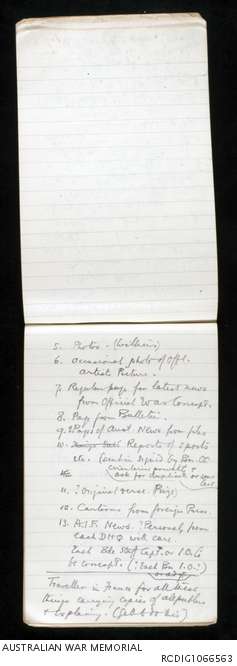 5. Photos - (Wilkins)
6. Occasional photo of offl.
artist Picture.
7. Regular page for latest news
from Official War Corresp.
8. Page from Bulletin.
9. Pages of Aust. News from
10. Reports of sports
etc. signed by Bn. CO
ask for duplicate
11. ? Original verse. Prize
12. Cartoons from foreign
13. A.I.F. News. ? Personally from
each DHQ will care.
Each Bde Staff Capt. or I.O. to
be corresp. (? Each Bn I.O.?)
Traveller in France for all these
things carrying copies of all publns
& explaining.
AUSTRALIAN WAR MEMORIAL
RCDIG1066563